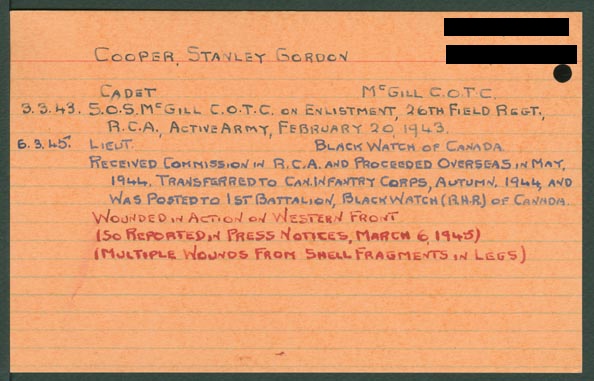 COOPER, STANLEY GORDON
CADET McGILL C.O.T.C.
3.3.43. S.O.S. McGILL C.O.T.C. ON ENLISTMENT, 26TH FIELD REGT.,
R.C.A., ACTIVE ARMY, FEBRUARY 20, 1943.
6.3.45. LIEUT. BLACK WATCH OF CANADA.
RECEIVED COMMISSION IN R.C.A. AND PROCEEDED OVERSEAS IN MAY,
1944. TRANSFERRED TO CAN. INFANTRY CORPS, AUTUMN, 1944, AND
WAS POSTED TO 1ST BATTALION, BLACK WATCH (R.H.R.) OF CANADA.
WOUNDED IN ACTION ON WESTERN FRONT
(SO REPORTED IN PRESS NOTICES, MARCH 6, 1945)
(MULTIPLE WOUNDS FROM SHELL FRAGMENTS IN LEGS)